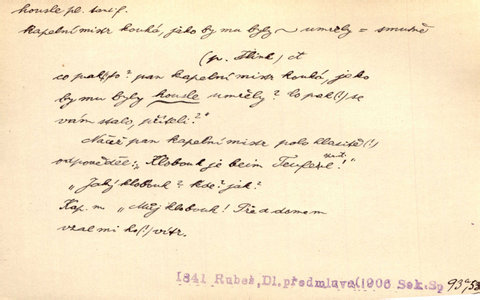 housle pl. tant f.
Kapelní mistr kouká, jako by mu byly ~ umřely = smutně
(p. Flink) čt
co pak(!)to? pan kapelní mistr kouká, jako
by mu byly housle umřely? Co pak(!) se
vám stalo, příteli?"
Načež pan kapelní mistr polo hlasitě(!)
odpověděl: „Klobouk je beim Teufel!"
„Jaký klobouk? kde? jak?
Kap. m „Můj klobouk! Před domem
vzal mi ho(!) vítr.
1841 Rubeš, Dl. předmluva(!906 Seb. Sp 93